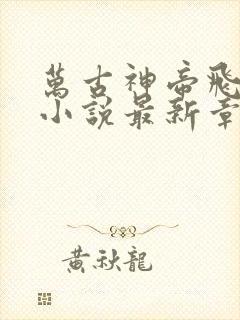 萬古神帝飛
小說最新章
黃秋龍